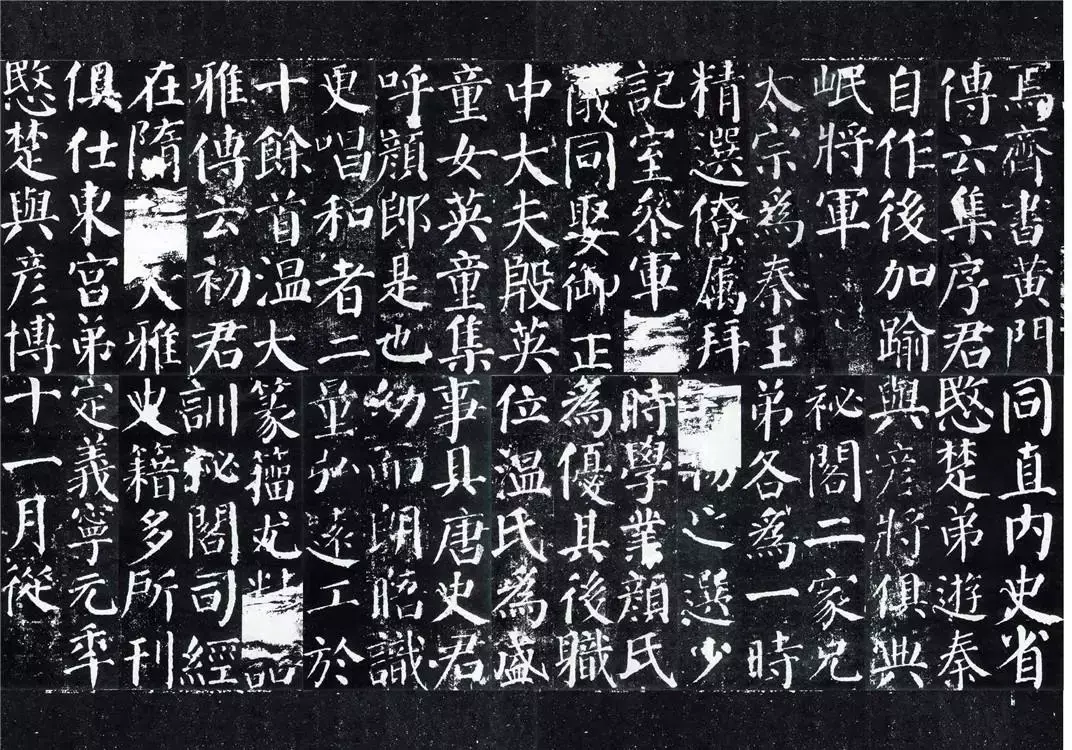 焉齊書黃門
傳云集序君
自作後加踰
岷將軍
太宗為秦王
精選僚属拜
記室叅軍
儀同娶御正
中大夫殷英
童女英童集
呼顏郎是也
更唱和者二
十餘首溫大
雅傳云初君
在隋大雅
俱仕東宮弟
愍楚與彦博
同直内史省
愍楚弟遊秦
與彦將俱典
祕閣二家兄
弟各為一時
物之選少
時學業顏氏
為優其後職
位溫氏為盛
事具唐史君
幼而朗晤識
量弘遠工於
篆籀尤
訓秘閣司經
史籍多所刊
定義寧元年
十一月從